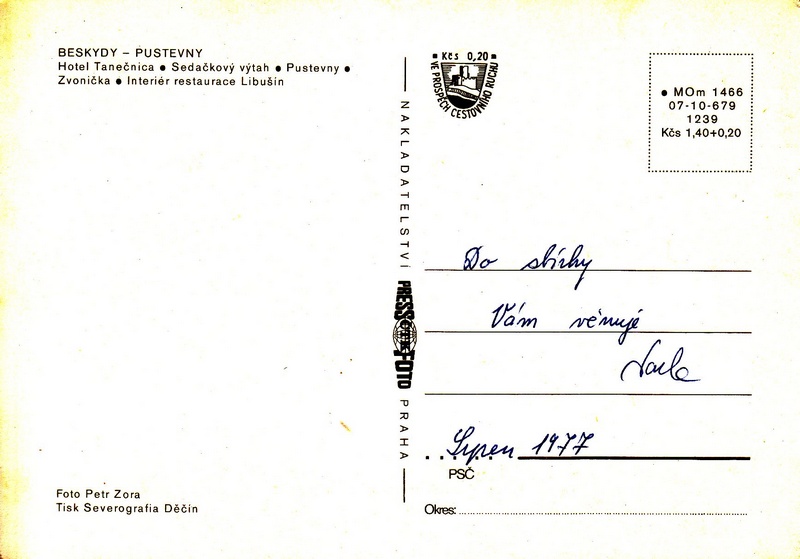 BESKYDY – PUSTEVNY
Hotel Tanečnica ● Sedačkový výtah ● Pustevny ●
Zvonička ● Interiér restaurace Libušín
Kčs 0,20
VE PROSPĚCH CESTOVNÍHO RUCHU
● MOm 1466
07-10-679
1239
Kčs 1,40+0,20
NAKLADATELSTVÍ PRESSFOTO PRAHA
Do sbírky
Vám věnuje
Srpen 1977
PSČ
Okres:
Foto Petr Zora
Tisk Severografia Děčín